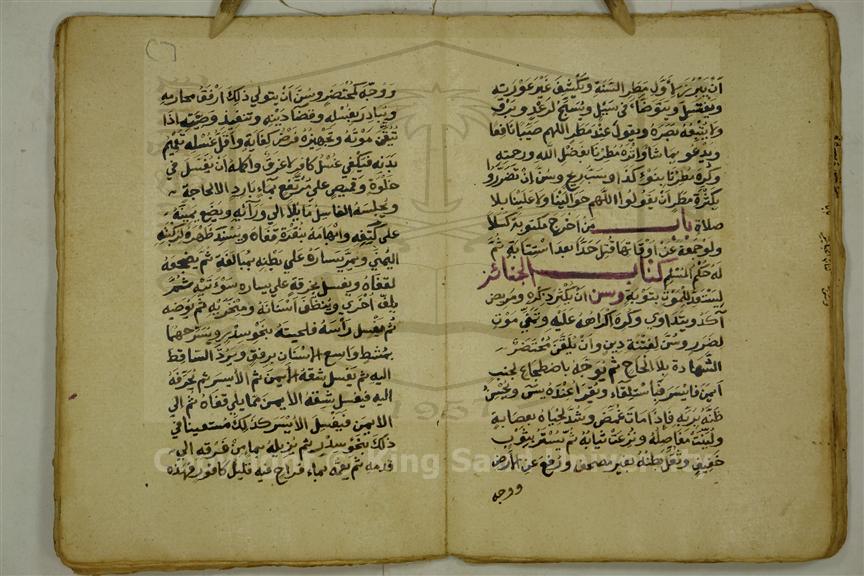 أن يبرز لأول مطر السنة ويكشف غير عورته
ويغتسل ويتوضأ في سيل ويسبح لرعد وبرق
ولا يتبعه بصره ويقول عند مطر اللهم صيبا نافعا
ويدعو بما شاء واثره مطرنا بفضل الله ورحمته
وكره مطرنا بنوء كذا وسب ريح وسن ان تضرروا
بكثرة مطر أن يقولوا اللهم حوالينا ولا علينا بلا
صلاة باب من اخرج مكتوبة كسلا
ولو جمعة عن اوقاتها قتل حدا بعد استتابة ثم
له حكم المسلم كتاب الجنائز
ليستعد للموت بتوبة وسن ان يكثر ذكره ومريض
آكد ويتداوى وكره اكراهه عليه وتمني موت
لضر وسن لفتنة دين وان يلقن محتضر
الشهادة بلا الحاح ثم يوجه باضطجاع لجنب
ايمن فايسر فباستلقاء ويقرأ عنده يس ويحسن
ظنه بربه فإذا مات غمض وشد لحياه بعصابة
ولينت مفاصله ونزعت ثيابه ثم ستر بثوب
خفيف وثقل بطنه بغير مصحف ورفع عن الأرض
ووجه
ووجه كمحتضر وسن أن يتولى ذلك ارفق محارمه
ويبادر بغسله وقضاء دينه وتنفيذ وصيته اذا
تيقن موته وتجهيزه فرض كفاية وأقل غسله تعميم
بدنه فيكفي غسل كافر لا غرق واكمله ان يغسل في
خلوة وقميص على مرتفع بماء بارد الا لحاجة
ويجلسه الغاسل مائلا الى ورائه ويضع يمينه
على كتفه وابهامه بنقرة قفاه ويسند ظهره بركبته
اليمنى ويمر يساره على بطنه بمبالغة ثم يضجعه
لقفاه ويغسل بخرقة على يساره سوءتيه ثم
يلف اخرى وينظف اسنانه ومنخريه ثم يوضه
ثم يغسل رأسه فلحيته بنحو سدر ويسرحهما
بمشط واسع الاسنان برفق ويرد الساقط
اليه ثم يغسل شقه الأيمن ثم الأيسر ثم يحرفه
اليه فيغسل شقه الايمن مما يلي قفاه ثم الى
الايمن فيغسل الأيسر كذلك مستعينا في
ذلك بنحو سدر ثم يزيله بماء من فرقه الى
قدمه ثم يعمه بماء قراح فيه قليل كافور فهذه
Copyright © King Saud University
1957